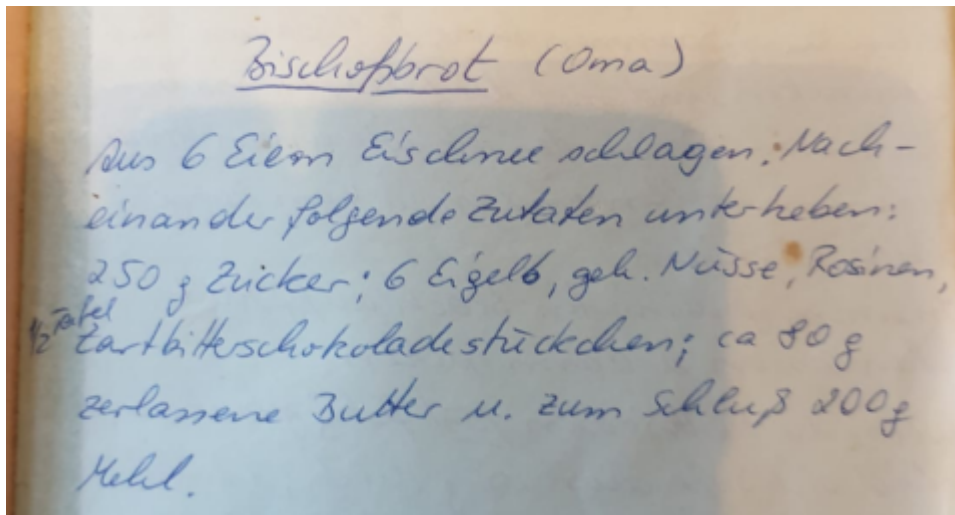 Bischofsbrot (Oma)
Aus 6 Eiern Eischnee schlagen. Nach-
einander folgende Zutaten unterheben:
250 g Zucker; 6 Eigelb, geh. Nüsse, Rosinen,
1/2 Tafel Zartbitterschokoladestückchen; ca 80 g
zerlassene Butter u. zum Schluß 200 g
Mehl.